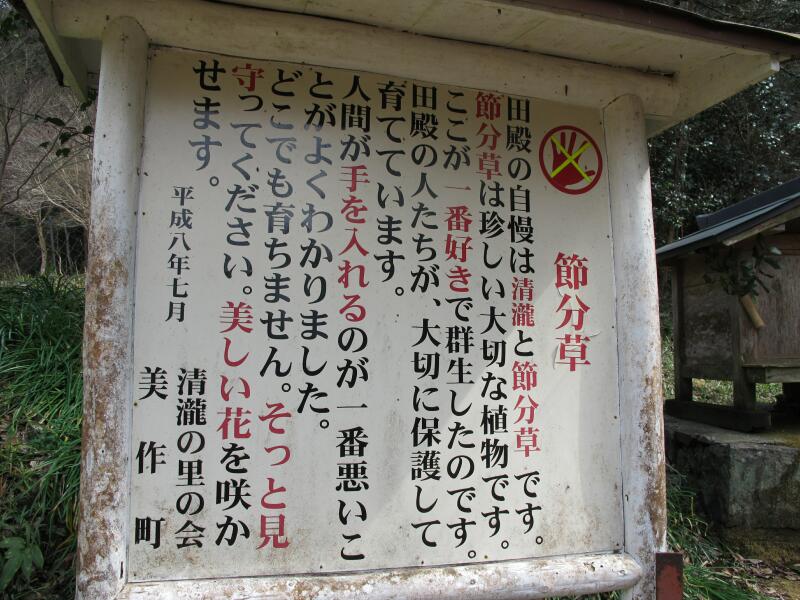 節分草
田殿の自慢は清瀧と節分草です。
節分草は珍しい大切な植物です。
ここが一番好きで群生したのです。
田殿の人たちが、大切に保護して
育てています。
人間が手を入れるのが一番悪いこ
とがよくわかりました。
どこでも育ちません。そっと見
守ってください。美しい花を咲か
せます。
平成八年七月
清瀧の里の会
美作町